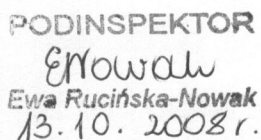 PODINSPEKTOR
ENowak
Ewa Rucińska-Nowak
13.10.2008r.